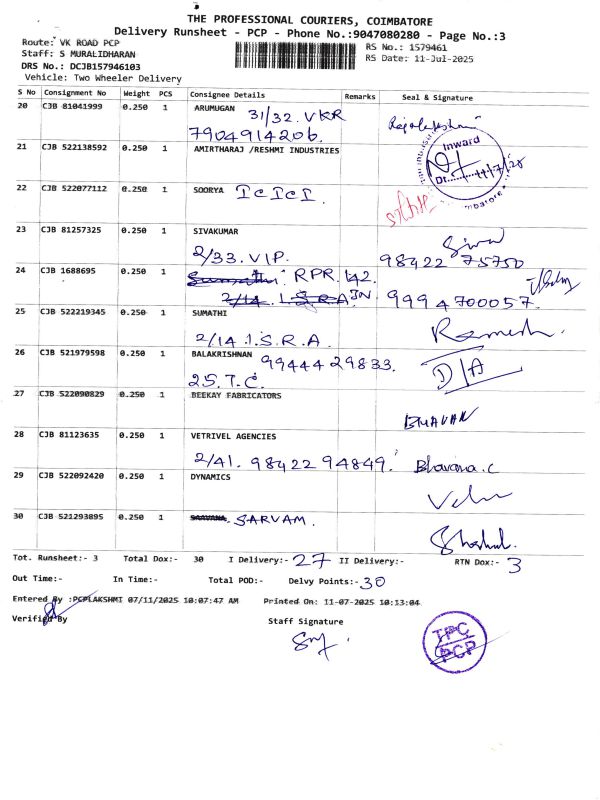 THE PROFESSIONAL COURIERS, COIMBATORE
Delivery Runsheet - PCP - Phone No.:9047080280 - Page No.:3
Route: VK ROAD PCP
RS No.: 1579461
Staff: S MURALIDHARAN
RS Date: 11-Jul-2025
DRS No.: DCJB157946103
Vehicle: Two Wheeler Delivery
S No Consignment No Weight PCS Consignee Details Remarks Seal & Signature
20 CJB 81041999 0.250 1 ARUMUGAN 31/32. VKR
7904914206.
21 CJB 522138592 0.250 1 AMIRTHARAJ /RESHMI INDUSTRIES
Inward
Dt. 11/7/25
22 CJB 522077112 0.250 1 SOORYA ICICI.
23 CJB 81257325 0.250 1 SIVAKUMAR
2/33. V.I.P. 98422 75750
24 CJB 1688695 0.250 1 Sumathi RPR. 142.
2/14. I.S.R.A. IN 9994700057.
25 CJB 522219345 0.250 1 SUMATHI
2/14 .I.S.R.A. Ramesh.
26 CJB 521979598 0.250 1 BALAKRISHNAN 9944429833.
25. T.C. D/A
27 CJB 522090829 0.250 1 BEEKAY FABRICATORS
BHAVAN
28 CJB 81123635 0.250 1 VETRIVEL AGENCIES
2/41. 9842294849. Bhavana.c
29 CJB 522092420 0.250 1 DYNAMICS
30 CJB 521293895 0.250 1 SARVAM.
Tot. Runsheet:- 3 Total Dox:- 30 I Delivery:- 27 II Delivery:- RTN Dox:- 3
Out Time:- In Time:- Total POD:- Delvy Points:- 30
Entered By :PCPLAKSHMI 07/11/2025 10:07:47 AM Printed On: 11-07-2025 10:13:04
Verified By Staff Signature
TPC
PCP